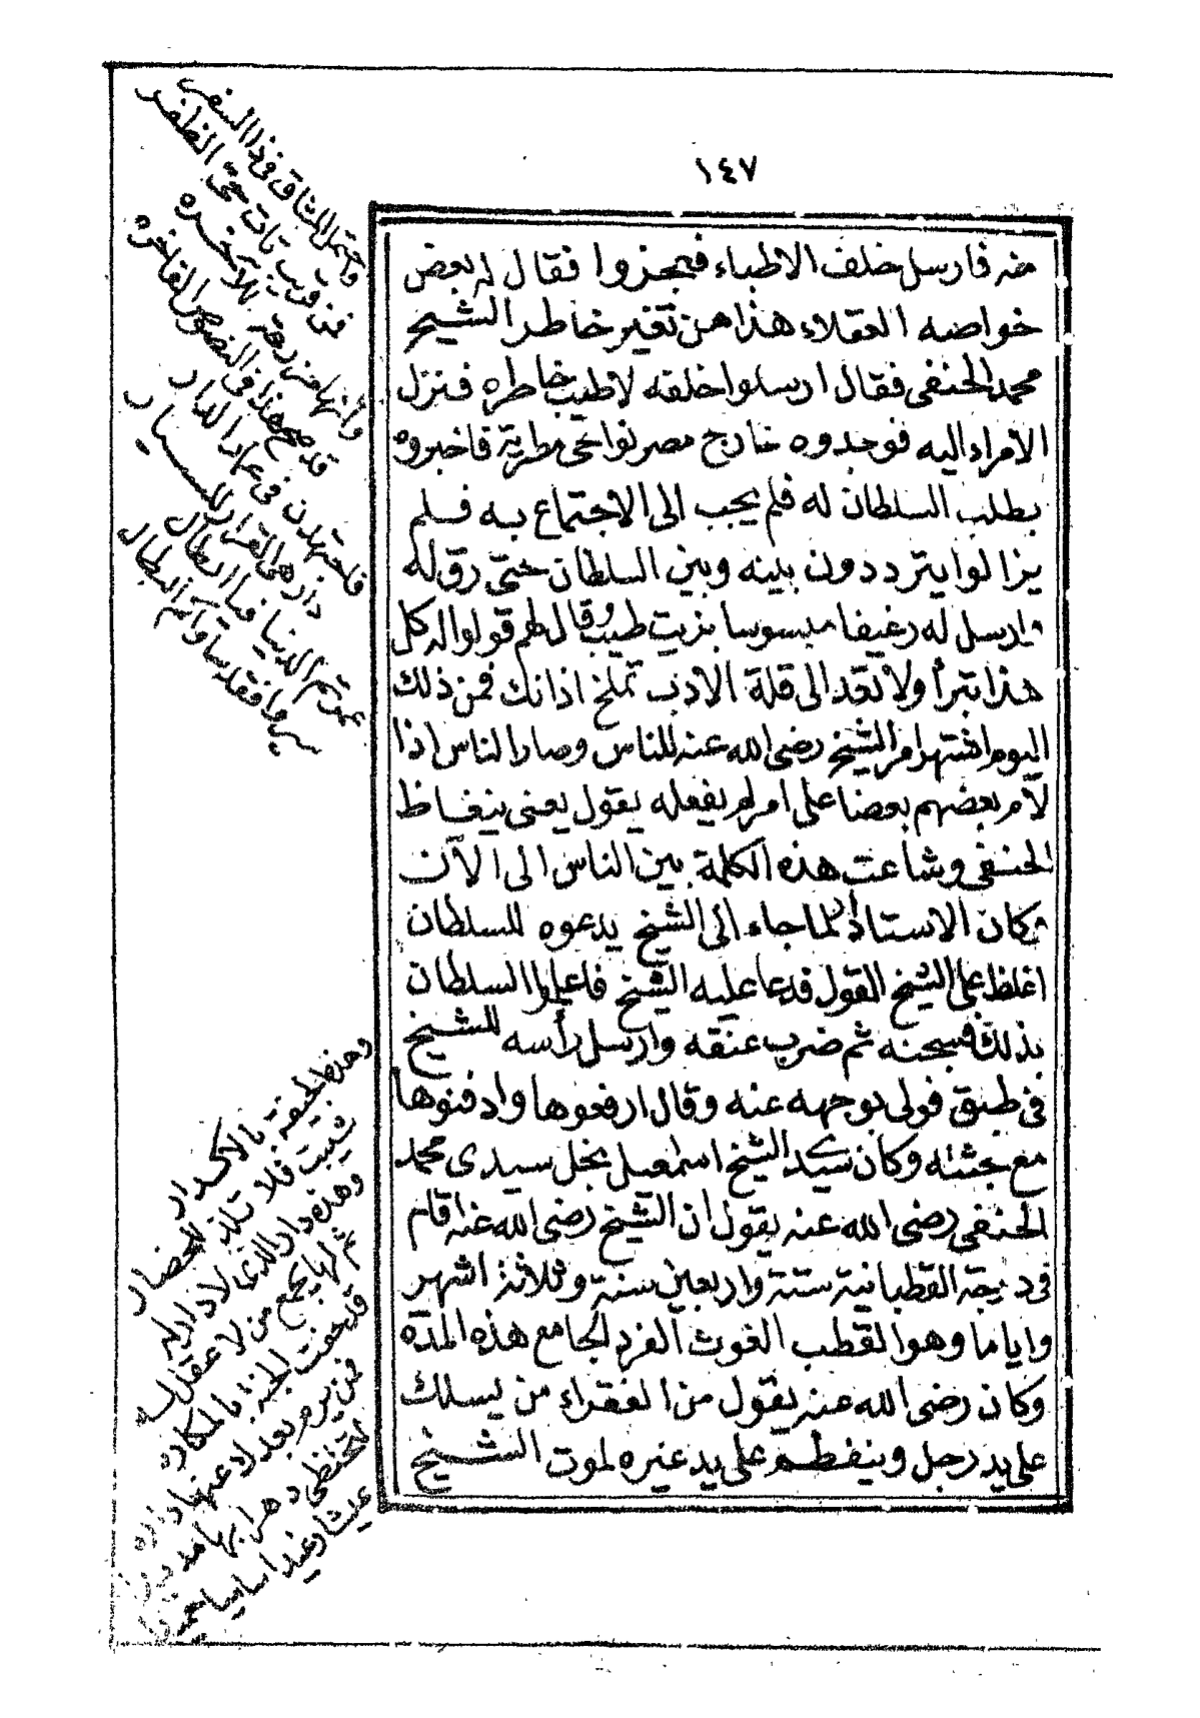 ١٤٧
منه فارسل خلف الاطباء فعجزوا فقال له بعض
خواصه العقلاء هذا من تغير خاطر الشيخ
محمد الحنفى فقال ارسلوا خلفه لاطيب خاطره فنزل
الامراء اليه فوجدوه خارج مصر نواحى مطرية فاخبروه
بطلب السلطان له فلم يجب الى الاجتماع به فلم
يزالوا يترددون بينه وبين السلطان حتى رق له
وارسل له رغيفا مبسوسا بزيت طيب وقال لهم قولوا له كل
هذا تبرأ ولا تعد الى قلة الادب نملخ اذانك فمن ذلك
اليوم اشتهر امر الشيخ رضى الله عنه للناس وصار الناس اذا
لام بعضهم بعضا على امر لم يفعله يقول يعنى ينغاظ
الحنفى وشاعت هذه الكلمة بين الناس الى الآن
وكان الاستاذ لما جاء الى الشيخ يدعوه للسلطان
اغلظ على الشيخ القول فدعا عليه الشيخ فاعلموا السلطان
بذلك فسجنه ثم ضرب عنقه وارسل رأسه للشيخ
فى طبق فولى بوجهه عنه وقال ارفعوها وادفنوها
مع جثته وكان سيدى الشيخ اسمعيل نجل سيدى محمد
الحنفى رضى الله عنه يقول ان الشيخ رضى الله عنه اقام
فى درجة القطبانية ستة واربعين سنة وثلاثة اشهر
واياما وهو القطب الغوث الفرد الجامع هذه المدة
وكان رضى الله عنه يقول من الفقراء من يسلك
على يد رجل وينفطم على يد غيره لموت الشيخ
واحتمل المشاق فى ذا السفر
فعن قريب تأت حتى الظفر
قد صح هذا فى النصوص الفاخره
فلتجتهدن فى عمار الدار
دار هى القرار
عمرتم الدنيا فيا ابطال
وهذه الجيفة بالاكدار
شيبت فلا تلذ للحضار
وهذه دار الذى لا دار له
ثم لها يجمع من لا عقل له
قد حفت الجنة بالمكاره